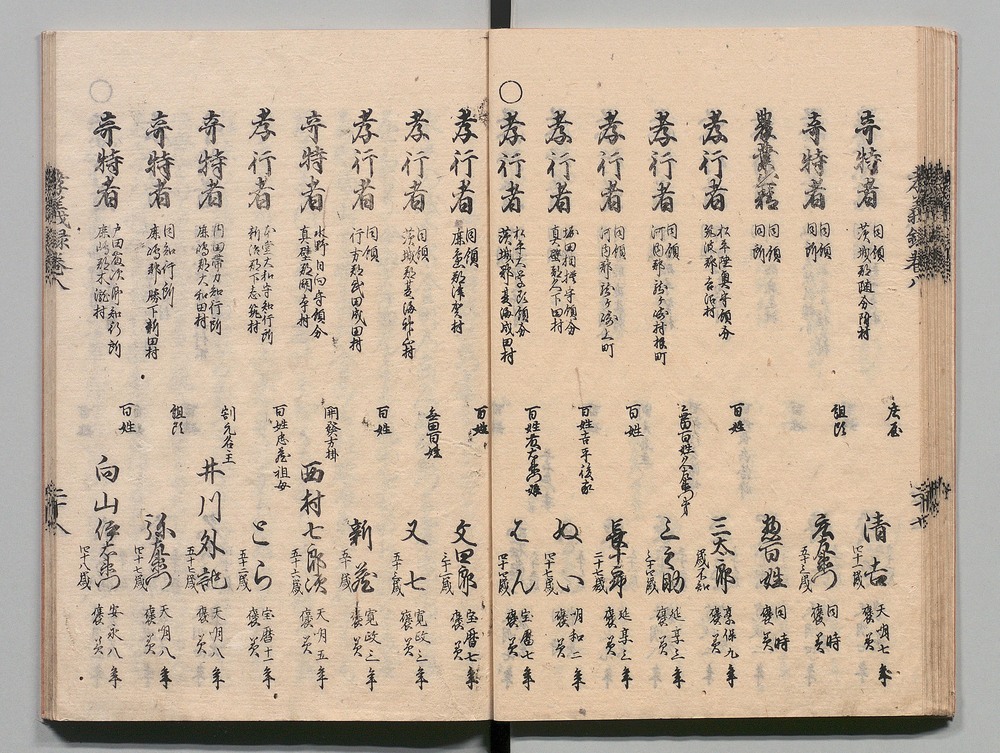 奇特者 同領 茨城郡随分附村 庄屋 清吉 四十一歳 天明七年 褒美
奇特者 同領 同所 組頭 五十三歳 同時 褒美
農業出精 同領 同所 惣百姓 同時 褒美
孝行者 松平陸奥守領分 筑波郡古沼村 百姓 三太郎 歳不知 享保九年 褒美
孝行者 同領 河内郡龍ヶ崎村根町 三之助 延享三年 褒美
孝行者 同領 河内郡龍ヶ崎上町 百姓 長十郎 二十二歳 延享三年 褒美
孝行者 堀田相模守領分 真壁郡久下田村 百姓吉平後家 ぬい 四十七歳 明和二年 褒美
○孝行者 松平大学頭領分 茨城郡長海成田村 百姓友右衛門娘 そん 宝暦七年 褒美
孝行者 同領 百姓 文四郎 宝暦七年 褒美
孝行者 同領 茨城郡 無田百姓 又七 寛政三年 褒美
孝行者 同領 行方郡武田成田村 百姓 新蔵 五十歳 寛政三年 褒美
奇特者 水野日向守領分 真壁郡関本村 開発方掛 西村七郎次 五十六歳 天明五年 褒美
孝行者 本堂大和守知行所 新治郡下志筑村 百姓忠蔵祖母 とら 五十二歳 宝暦十一年 褒美
奇特者 内田帯刀知行所 鹿嶋郡大和田村 割元名主 井川外記 五十七歳 天明八年 褒美
奇特者 同知行所 鹿嶋郡勝下新田村 組頭 弥右衛門 四十八歳 天明八年 褒美
○奇特者 戸田次郎知行所 鹿嶋郡 百姓 向山伊左衛門 四十八歳 安永八年 褒美
孝義録巻八
孝義録巻八
二十八